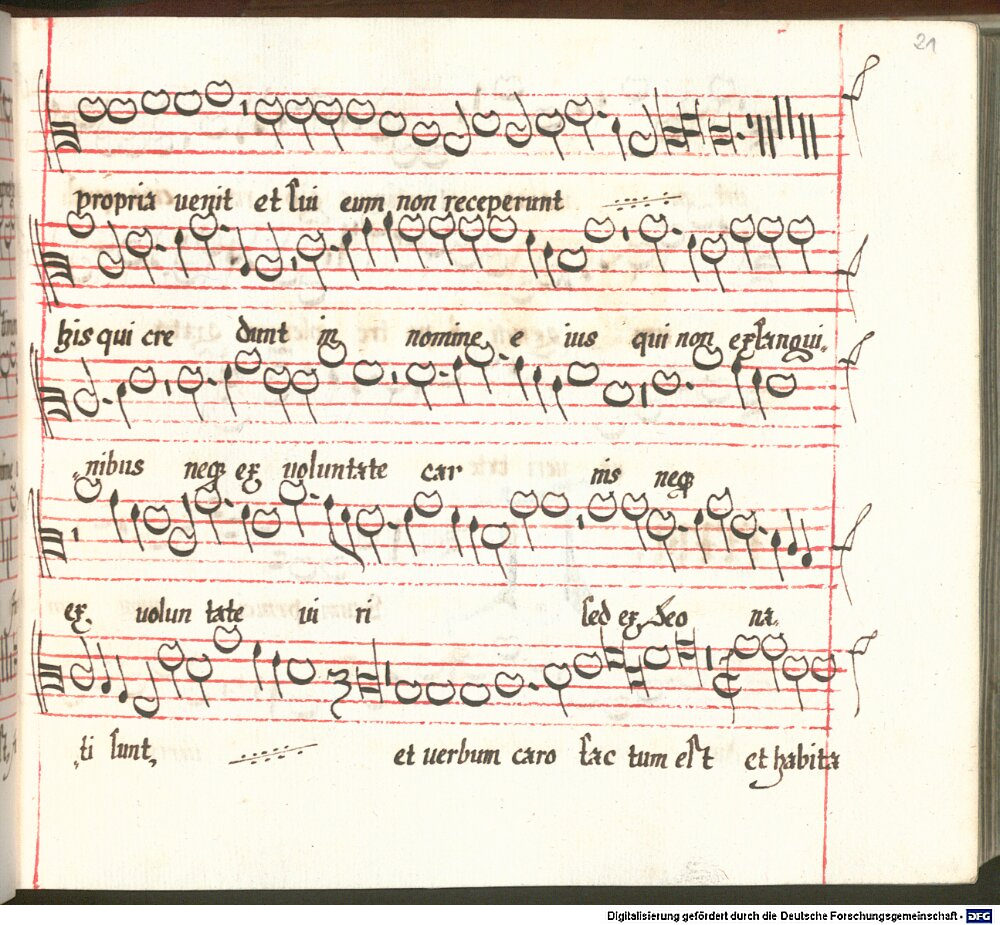 21
propria uenit et sui eum non receperunt
his qui cre dunt in nomine e ius qui non ex sangui„
„nibus neqȝ ex uoluntate car nis neqȝ
ex. uolun tate ui ri sed ex deo na„
„ti sunt„ et uerbum caro fac tum est et habita
Digitalisierung gefördert durch die Deutsche Forschungsgemeinschaft - DFG